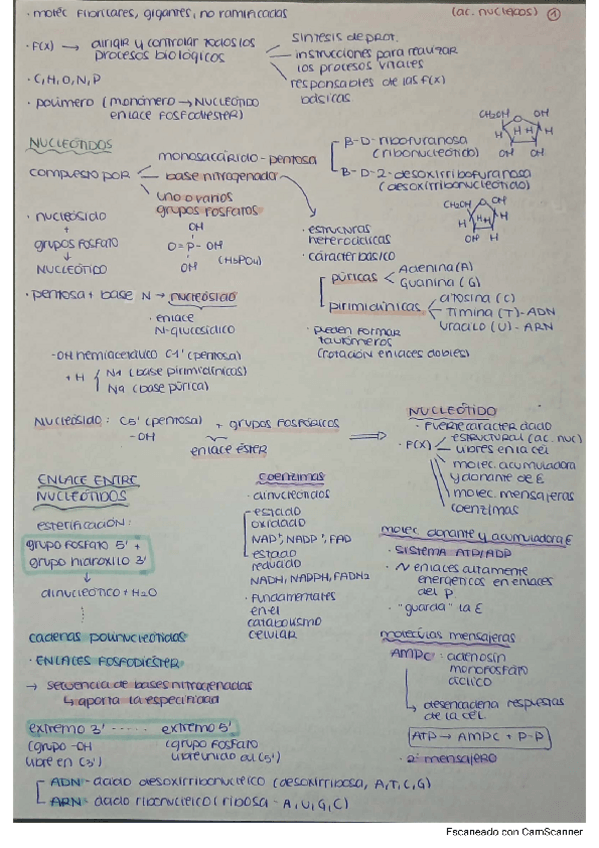 (ac. nucleicos) 1
· molec fibrilares, gigantes, no ramificadas
· F(x) → dirigir y controlar todos los procesos biológicos
síntesis de prot.
instrucciones para realizar los procesos vitales
responsables de las f(x) básicas
· C, H, O, N, P
· polímero (monómero → NUCLEÓTIDO
enlace FOSFODIÉSTER)
NUCLEÓTIDOS
compuesto por
monosacárido - pentosa
base nitrogenada
uno o varios
grupos fosfatos
β-D-ribofuranosa
(ribonucleótido)
β-D-2-desoxirribofuranosa
(desoxirribonucleótido)
CH2OH O OH
H H H
OH OH
CH2OH O OH
H H H
OH H
· nucleósido
+
grupos fosfato
↓
NUCLEÓTIDO
OH
O=P-OH
OH
(H3PO4)
· estructuras
heterocíclicas
· carácter básico
púricas
Adenina (A)
Guanina (G)
pirimidínicas
citosina (C)
Timina (T) - ADN
Uracilo (U) - ARN
· pueden formar
tautómeros
(rotación enlaces dobles)
· pentosa + base N → nucleósido
· enlace
N-glucosídico
-OH hemiacetálico C1' (pentosa)
+ H
N1 (base pirimidínicas)
N9 (base púrica)
Nucleósido: C5' (pentosa) + grupos fosfóricos
-OH
enlace éster
NUCLEÓTIDO
· FUERTE carácter ácido
· F(x)
estructural (ac. nuc)
libres en la cel
molec. acumuladora
y donante de E
molec. mensajeras
coenzimas
ENLACE ENTRE
NUCLEÓTIDOS
esterificación:
grupo fosfato 5' +
grupo hidroxilo 3'
↓
dinucleótico + H2O
cadenas polinucleótidas
· ENLACES FOSFODIÉSTER
→ secuencia de bases nitrogenadas
↳ aporta la especificidad
extremo 3' ······ extremo 5'
(grupo -OH
libre en C3')
(grupo fosfato
libre unido al C5')
coenzimas
· dinucleótidos
estado
oxidado
NAD+, NADP+, FAD
estado
reducido
NADH, NADPH, FADH2
· fundamentales
en el
catabolismo
celular
molec. donante y acumuladora E
· SISTEMA ATP/ADP
· N enlaces altamente
energéticos en enlaces
del P
· "guarda" la E
moléculas mensajeras
AMPC: adenosín
monofosfato
cíclico
↳ desencadena respuestas
de la cel.
ATP → AMPC + P-P
· 2º mensajero
ADN - ácido desoxirribonucleico (desoxirribosa, A, T, C, G)
ARN - ácido ribonucleico (ribosa - A, U, G, C)
Escaneado con CamScanner